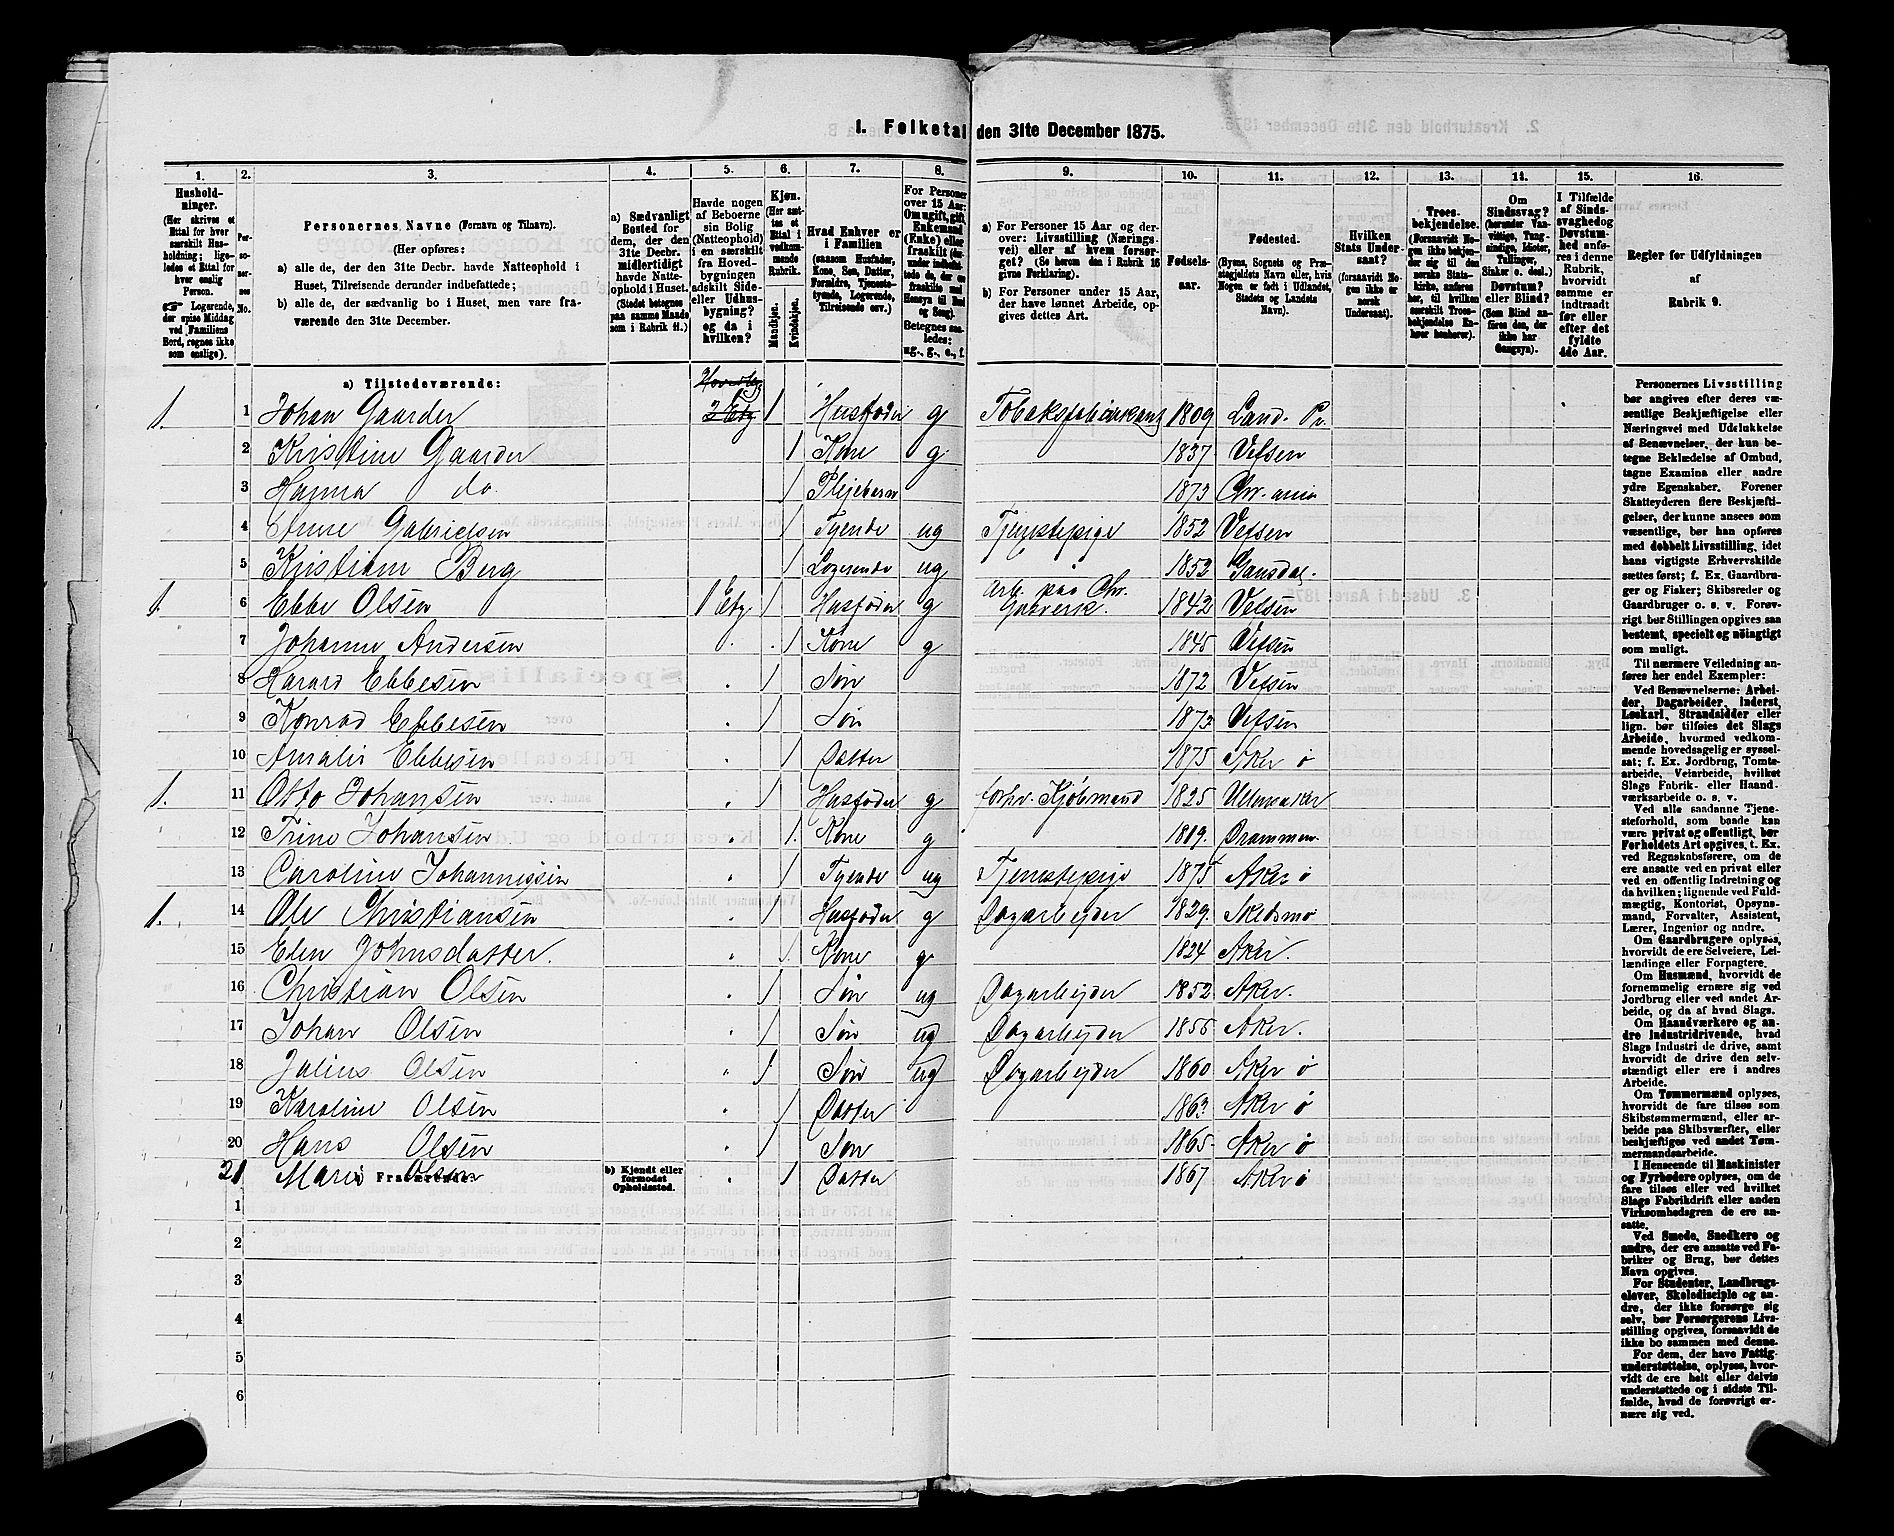 I. Folketal den 31te December 1875.
1. 2. 3. 4. 5. 6. 7. 8. 9. 10. 11. 12. 13. 14. 15. 16.
Hushold-
ninger.
(Her skrives et
Ettal for hver
særskilt Hus-
holdning; lige-
ledes et Ettal for
hver enslig
Person.
Logerende,
der spise Middag
ved Familiens
Bord, regnes ikke
som enslige).
Personernes Navne (Fornavn og Tilnavn).
(Her opføres:
a) alle de, der den 31te Decbr. havde Natteophold i
Huset, Tilreisende derunder indbefattede;
b) alle de, der sædvanlig bo i Huset, men vare fra-
værende den 31te December.
a) Sædvanligt
Bosted for
dem, der den
31te Decbr.
midlertidigt
havde Natte-
ophold i Huset.
(Stedet betegnes
paa samme Maade
som i Rubrik 11.)
Havde nogen
af Beboerne
sin Bolig
(Natteophold)
i en særskilt
fra Hoved-
bygningen
adskilt Side-
eller Udhus-
bygning?
og da i
hvilken?
Kjøn.
(Her sæt-
tes et
Ettal i
vedkom-
mende
Rubrik.
Mandkjøn.
Kvindekjøn.
Hvad Enhver er
i Familien
(saasom Husfader,
Kone, Søn, Datter,
Forældre, Tjeneste-
tyende, Logerende,
Tilreisende osv.)
For Personer
over 15 Aar:
Om ugift, gift,
Enkemand
(Enke) eller
fraskilt
Betegnes saa-
ledes:
ug., g., e., f.
a) For Personer over 15 Aar og der-
over: Livsstilling (Nærings-
vei) eller af hvem forsør-
get? (Se herom den i Rubrik 16
givne Forklaring).
b) For Personer under 15 Aar,
der have lønnet Arbeide, op-
gives dettes Art.
Fødsels-
aar.
Fødested.
(Byens, Sognets og Præ-
stegjeldets Navn eller, hvis
Nogen er født i Udlandet,
Stedets og Landets
Navn).
Hvilken
Stats Under-
saat?
(forsaavidt No-
gen ikke er
norsk
Undersaat).
Troes-
bekjendelse.
(Forsaavidt No-
gen ikke bekjen-
der sig til den
norske Stats-
kirke, anføres
her, til hvilken
særskilt Troes-
bekjendelse En-
hver henhører).
Om
Sindssvag?
(herunder Van-
vittige, Tung-
sindige, Idioter,
Tullinger,
Sinker o. desl.)
Døvstum?
eller Blind?
(Som Blind an-
føres den, der
ikke har
Gangsyn).
I Tilfælde
af Sinds-
svaghed og
Døvstum-
hed anfø-
res i denne
Rubrik,
hvorvidt
samme er
indtraadt
før eller
efter det
fyldte
4de Aar.
Regler for Udfyldningen
af
Rubrik 9.
a) Tilstedeværende:
1. 1 Johan Gaarder 2 Etg 1 Husfader g Tobaksfabrikant 1809 Land. Pr.
2 Kristine Gaarder 1 Kone g 1837 Vefsen
3 Hanna do. 1 Plejebarn 1873 Chr. ania
4 Anne Gabrielsen 1 Tyende ug Tjenestepige 1852 Vefsen
5 Kristiane Berg 1 Logerende ug 1852
1. 6 Ebbe Olsen 1 Etg. 1 Husfader g Arb. paa Chr. Gasverk. 1842 Vefsen
7 Johanne Andersen 1 Kone g 1845 Vefsen
8 Harald Ebbesen 1 Søn 1872 Vefsen
9 Konrad Ebbesen 1 Søn 1873 Vefsen
10 Amalie Ebbesen 1 Datter 1875 Aker ø
1. 11 Otto Johansen 1 Husfader g forhv. Kjøbmand 1825 Ullensaker
12 Trine Johansen 1 Kone g 1809. Drammen
13 Caroline Johannessen 1 Tyende ug Tjenestepige Aker ø
1. 14 Ole Christiansen 1 Husfader g Dagarbejder 1829. Skedsmo
15 Elen Johnsdatter. 1 Kone g 1824 Aker.
16 Christian Olsen 1 Søn ug Dagarbejder 1852 Aker.
17 Johan Olsen 1 Søn ug Dagarbejder 1856 Aker.
18 Julius Olsen 1 Søn ug Dagarbejder 1860 Aker ø
19 Karoline Olsen 1 Datter 1863 Aker ø
20 Hans Olsen 1 Søn 1865 Aker ø
21 Marie Olsen 1 Datter 1867 Aker ø
Fraværende:
b) Kjendt eller
formodet
Opholdssted.
1
2
3
4
5
6
Personernes Livsstilling
bør angives efter deres væ-
sentlige Beskjæftigelse eller
Næringsvei med Udelukkelse
af Benævnelser, der kun be-
tegne Beklædelse af Ombud,
tagne Examina eller andre
ydre Egenskaber. Forener
Skatteyderen flere Beskjæfti-
gelser, der kunne ansees som
væsentlige, bør han opføres
med dobbelt Livsstilling, idet
hans vigtigste Erhvervskilde
sættes først; f. Ex. Gaardbru-
ger og Fisker; Skibsreder og
Gaardbruger o. s. v. Forøv-
rigt bør Stillingen opgives saa
bestemt, specielt og nöiagtigt
som muligt.
Til nærmere Veiledning an-
føres her endel Exempler:
Ved Benævnelserne: Arbei-
der, Dagarbeider, Inderst,
Løskarl, Strandsidder eller
lign. bør tilføies det Slags
Arbeide, hvormed vedkom-
mende hovedsagelig er syssel-
sat; f. Ex. Jordbrug, Tomte-
arbeide, Veiarbeide, hvilket
Slags Fabrik- eller Haand-
værksarbeide o. s. v.
Ved alle saadanne Tjene-
steforhold, som baade kan
være privat og offentligt, bør
Forholdets Art opgives, t. Ex.
ved Regnskabsførere, om de
ere ansatte ved en privat eller
ved en offentlig Indretning og
da hvilken; lignende ved Fuld-
mægtig, Kontorist, Opsyns-
mand, Forvalter, Assistent,
Lærer, Ingeniør og andre.
Om Gaardbrugere oplyses,
hvorvidt de ere Selveiere, Lei-
lændinge eller Forpagtere.
Om Husmænd, hvorvidt de
fornemmelig ernære sig ved
Jordbrug eller ved andet Ar-
beide, og da af hvad Slags.
Om Haandværkere og an-
dre Industridrivende, hvad
Slags Industri de drive, samt
hvorvidt de drive den selv-
stændigt eller ere i andres
Arbeide.
Om Tømmermænd oplyses,
hvorvidt de fare tilsøs som
Skibstømmermænd, eller ar-
beide paa Skibsværfter, eller
beskjæftiges ved andet Tøm-
mermandsarbeide.
I Henseende til Maskinister
og Fyrbødere oplyses, om de
fare tilsøs eller ved hvilket
Slags Fabrikdrift eller anden
Virksomhedsgren de ere an-
satte.
Ved Smede, Snedkere og
andre, der ere ansatte ved Fa-
briker og Brug, bør dettes
Navn opgives.
For Studenter, Landbrugs-
elever, Skoledisciple og an-
dre, der ikke forsørge sig
selv, bør Forsørgerens Livs-
stilling opgives, forsaavidt de
ikke bo sammen med denne.
For dem, der have Fattig-
understøttelse, oplyses, hvor-
vidt de ere helt eller delvis
understøttede og i sidste Til-
fælde, hvad de forøvrigt er-
nære sig ved.